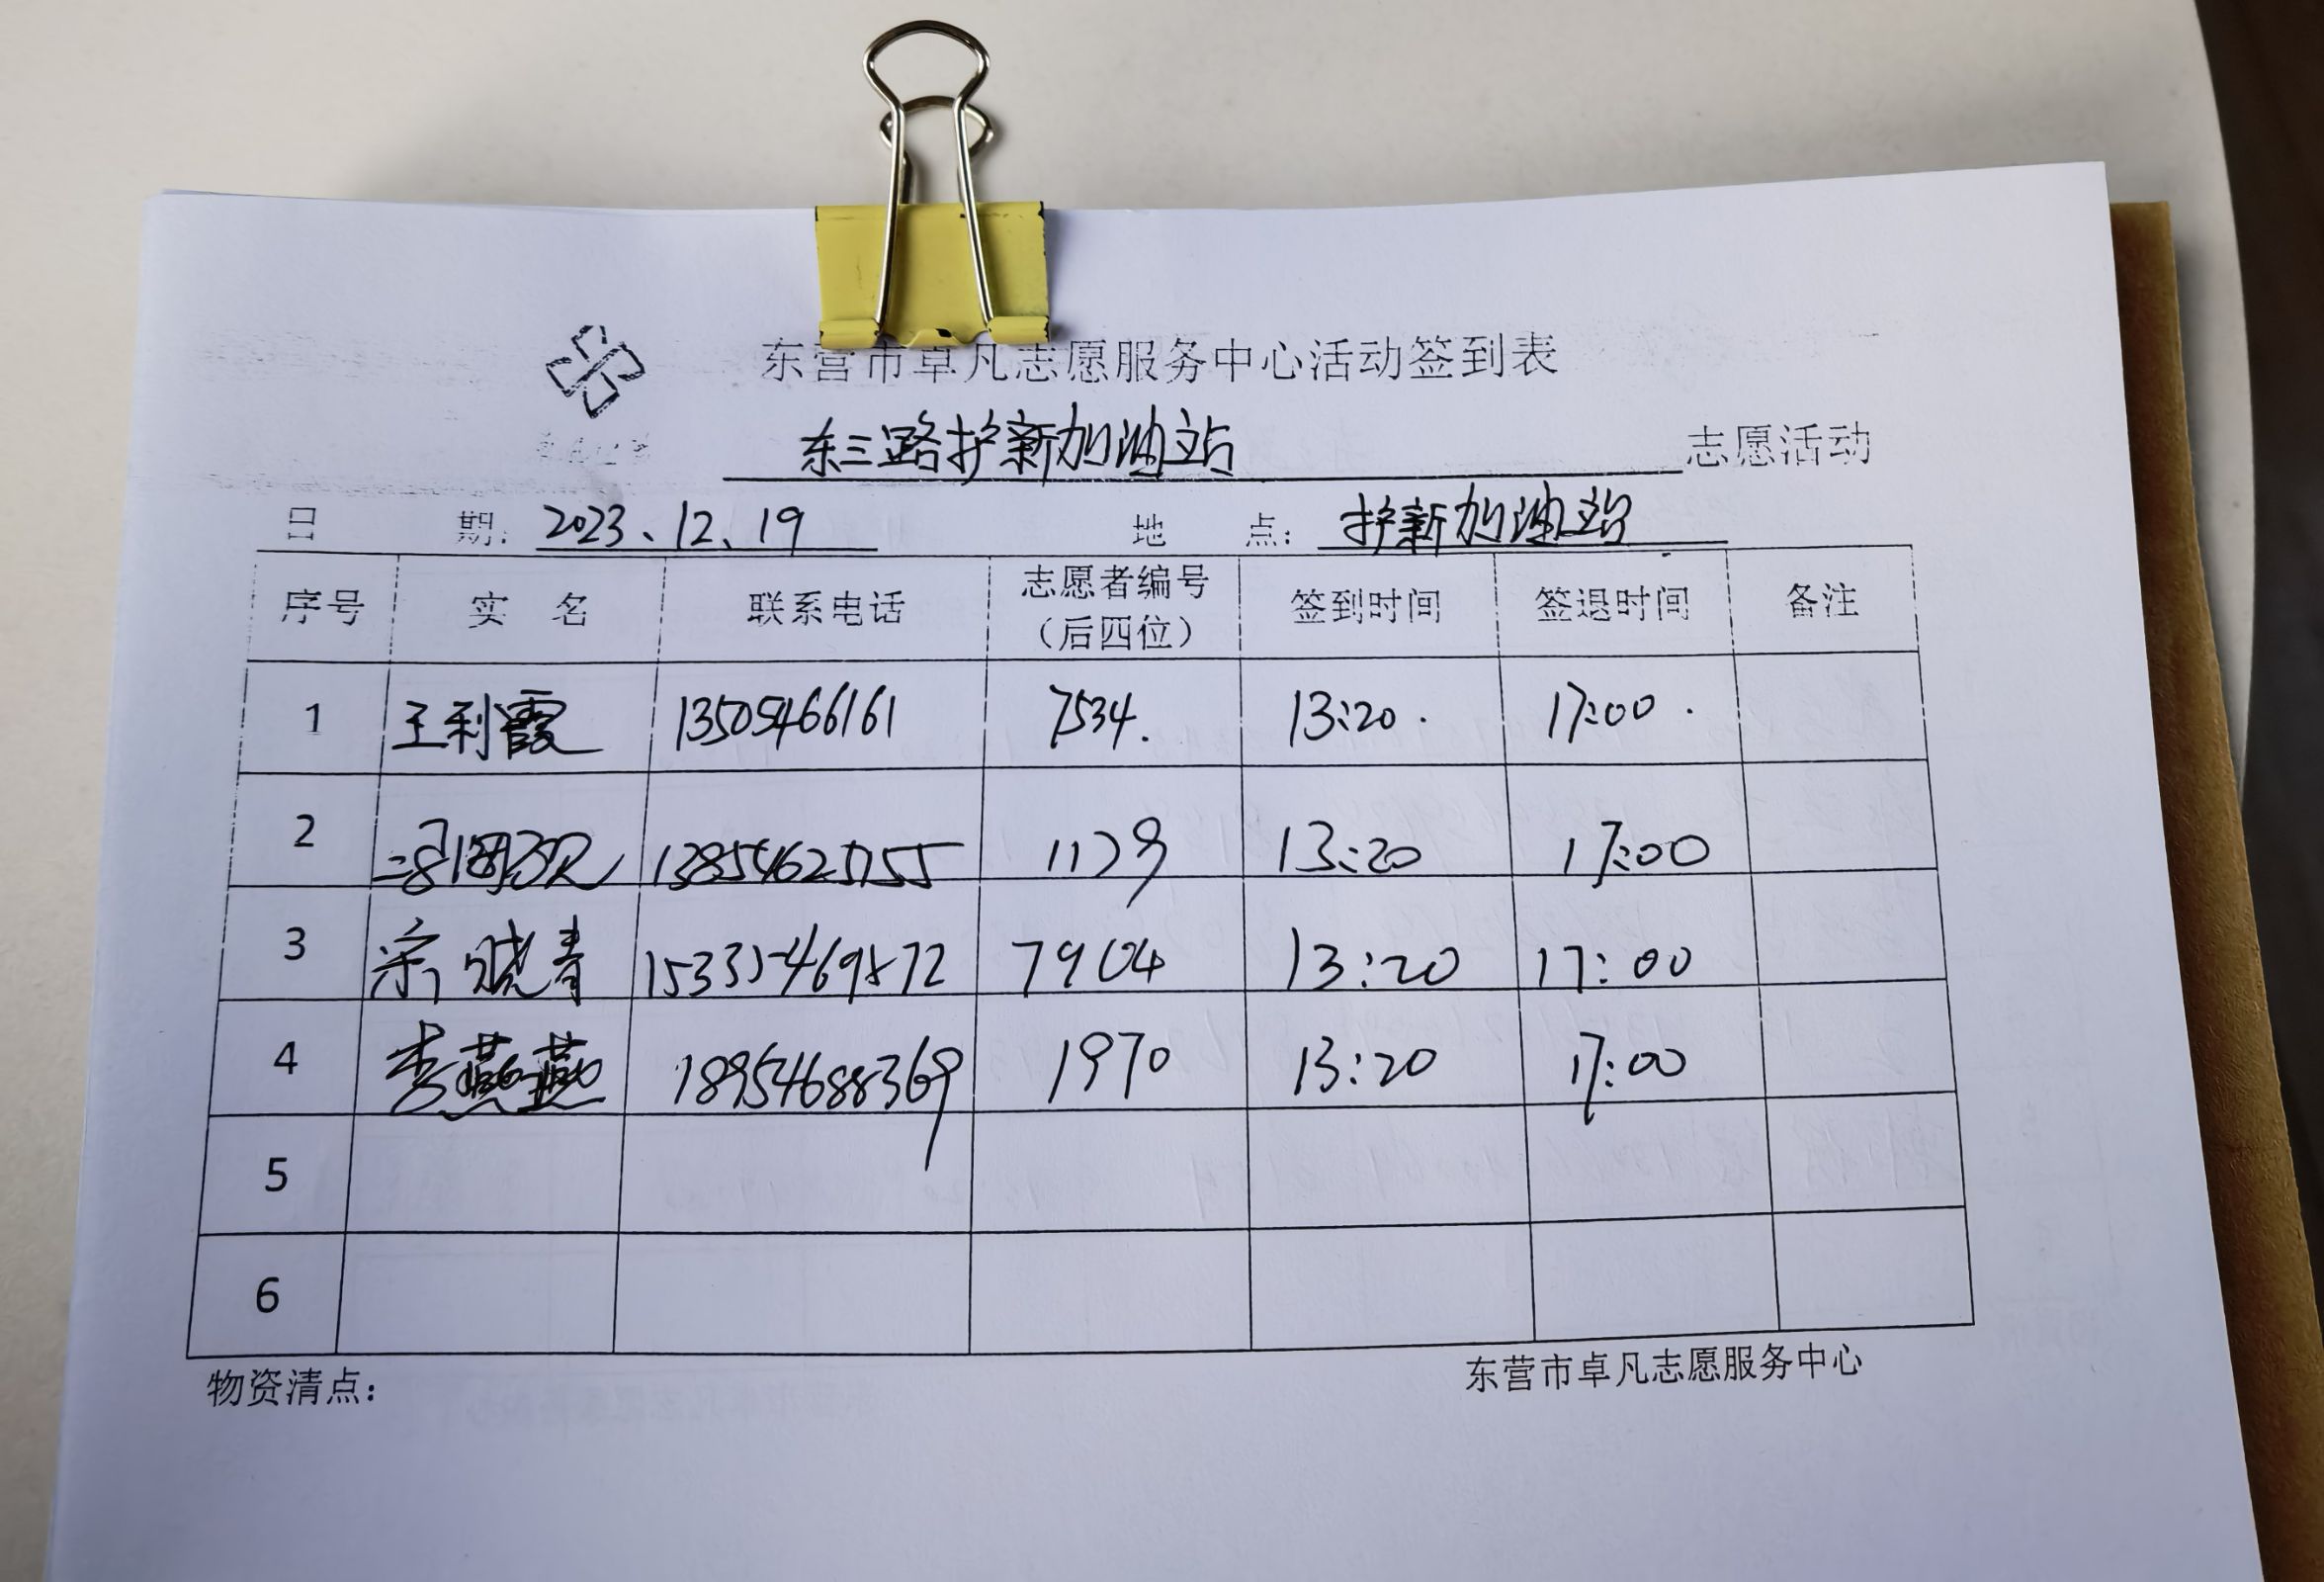 东营市卓凡志愿服务中心活动签到表
东三路护新加油站 志愿活动
日 期: 2023、12、19 地 点: 护新加油站
序号 实 名 联系电话 志愿者编号（后四位） 签到时间 签退时间 备注
1 王利霞 13505466161 7534. 13:20. 17:00.
2 1129 13:20 17:00
3 宗晓青 15335469572 7904 13:20 17:00
4 李燕燕 18954688369 1970 13:20 17:00
5
6
物资清点: 东营市卓凡志愿服务中心